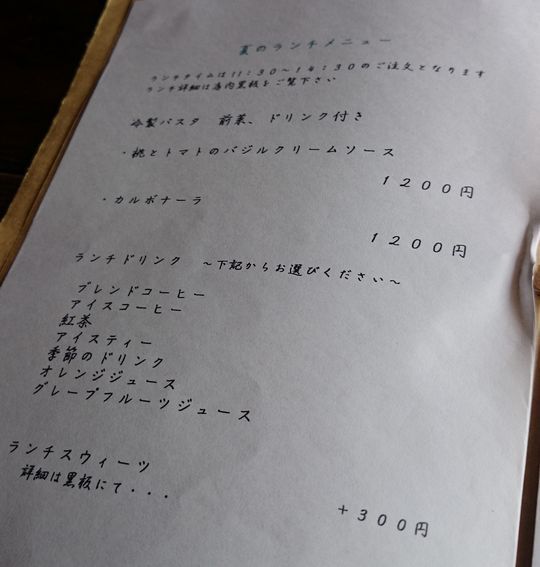 夏のランチメニュー
ランチタイムは11:30～14:30のご注文となります
ランチ詳細は店内黒板をご覧下さい
冷製パスタ 前菜、ドリンク付き
・桃とトマトのバジルクリームソース
1200円
・カルボナーラ
1200円
ランチドリンク ～下記からお選びください～
ブレンドコーヒー
アイスコーヒー
紅茶
アイスティー
季節のドリンク
オレンジジュース
グレープフルーツジュース
ランチスウィーツ
詳細は黒板にて・・・
+300円